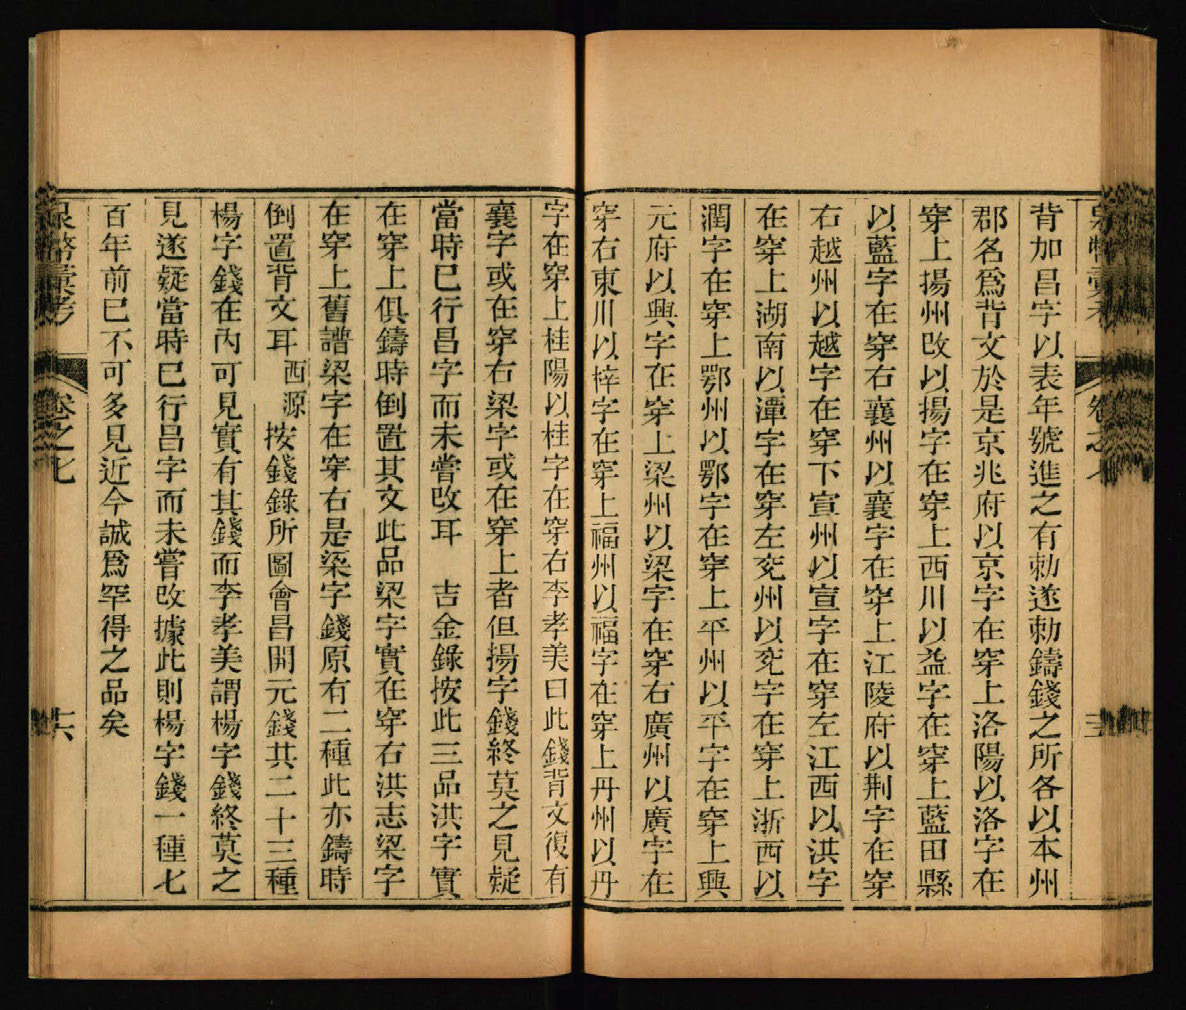 背加昌字以表年號進之有勅遂勅鑄錢之所各以本州
郡名爲背文於是京兆府以京字在穿上洛陽以洛字在
穿上揚州改以揚字在穿上西川以益字在穿上藍田縣
以藍字在穿右襄州以襄字在穿上江陵府以荆字在穿
右越州以越字在穿下宣州以宣字在穿左江西以洪字
在穿上湖南以潭字在穿左兖州以兖字在穿上浙西以
潤字在穿上鄂州以鄂字在穿上平州以平字在穿上興
元府以興字在穿上梁州以梁字在穿右廣州以廣字在
穿右東川以梓字在穿上福州以福字在穿上丹州以丹
字在穿上桂陽以桂字在穿右李孝美曰此錢背文復有
襄字或在穿右梁字或在穿上者但揚字錢終莫之見疑
當時已行昌字而未嘗改耳 吉金錄按此三品洪字實
在穿上俱鑄時倒置其文此品梁字實在穿右洪志梁字
在穿上舊譜梁字在穿右是梁字錢原有二種此亦鑄時
倒置背文耳 西源按錢錄所圖會昌開元錢共二十三種
楊字錢在內可見實有其錢而李孝美謂楊字錢終莫之
見遂疑當時已行昌字而未嘗改據此則楊字錢一種七
百年前已不可多見近今誠爲罕得之品矣
泉幣彙考
卷之七